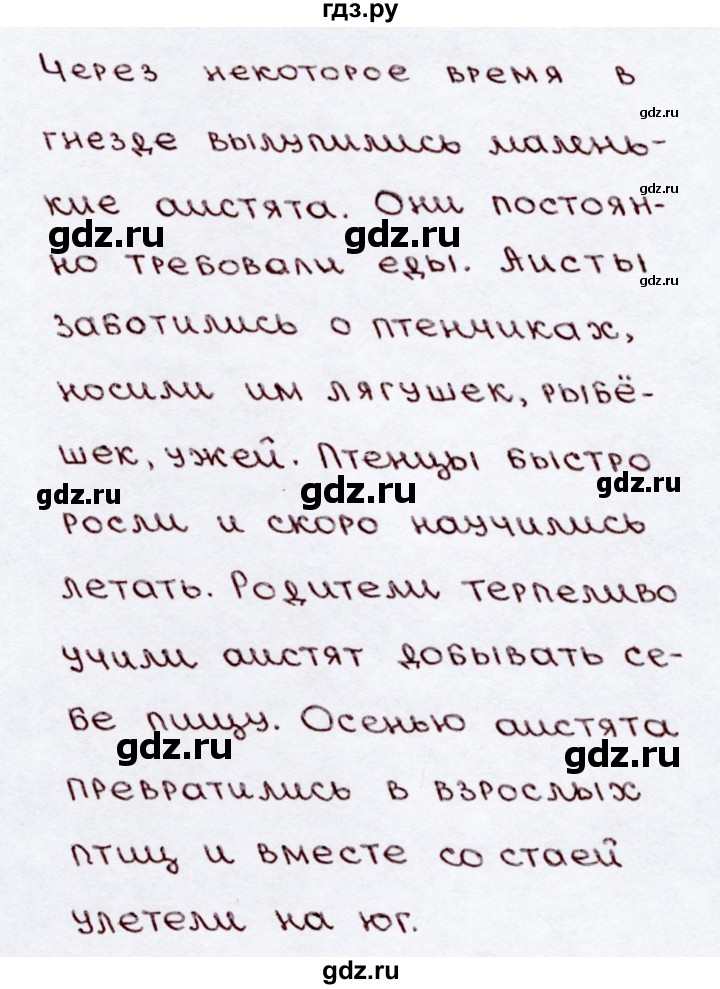 гдз.ру
Через некоторое время в
gdz.ru
гнезде вылупились малень-
gdz.ru
кие аистята. Они постоян-
gdz.ru gdz.ru
но требовали еды. Аисты
gdz.ru
заботились о птенчиках,
носили им лягушек, рыбё-
шек, ужей. Птенцы быстро
gdz.ru gdz.ru gdz.ru
росли и скоро научились
летать. Родители терпеливо
учили аистят добывать се-
бе пищу. Осенью аистята
gdz.ru gdz.ru
превратились в взрослых
птиц и вместе со стаей
улетели на юг.
gdz.ru